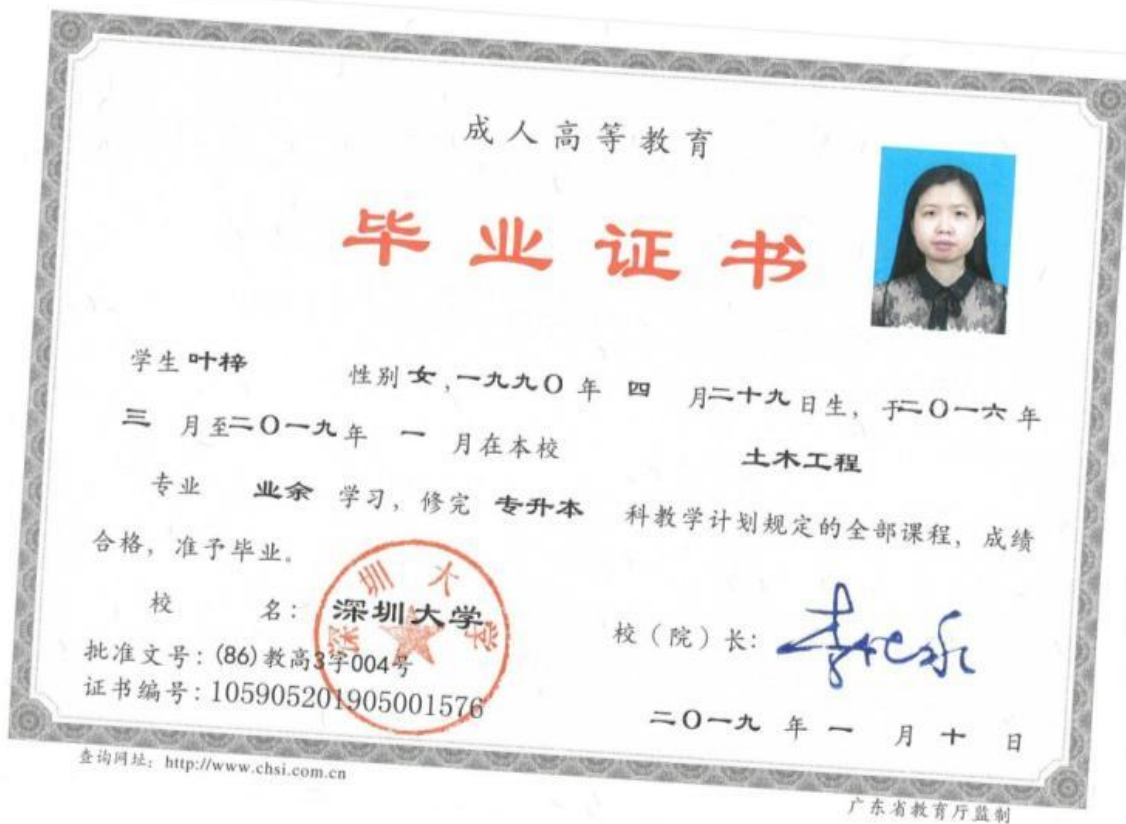 成人高等教育
毕业证书
学生 叶梓 性别 女,一九九〇 年 四 月二十九日生,于二〇一六 年
三 月至二〇一九年 一 月在本校 土木工程
专业 业余 学习,修完 专升本 科教学计划规定的全部课程,成绩
合格,准予毕业。
校 名: 深圳大学
深圳大学
校(院)长:
批准文号:(86)教高3字004号
证书编号:105905201905001576
二〇一九 年 一 月 十 日
查询网址:http://www.chsi.com.cn
广东省教育厅监制